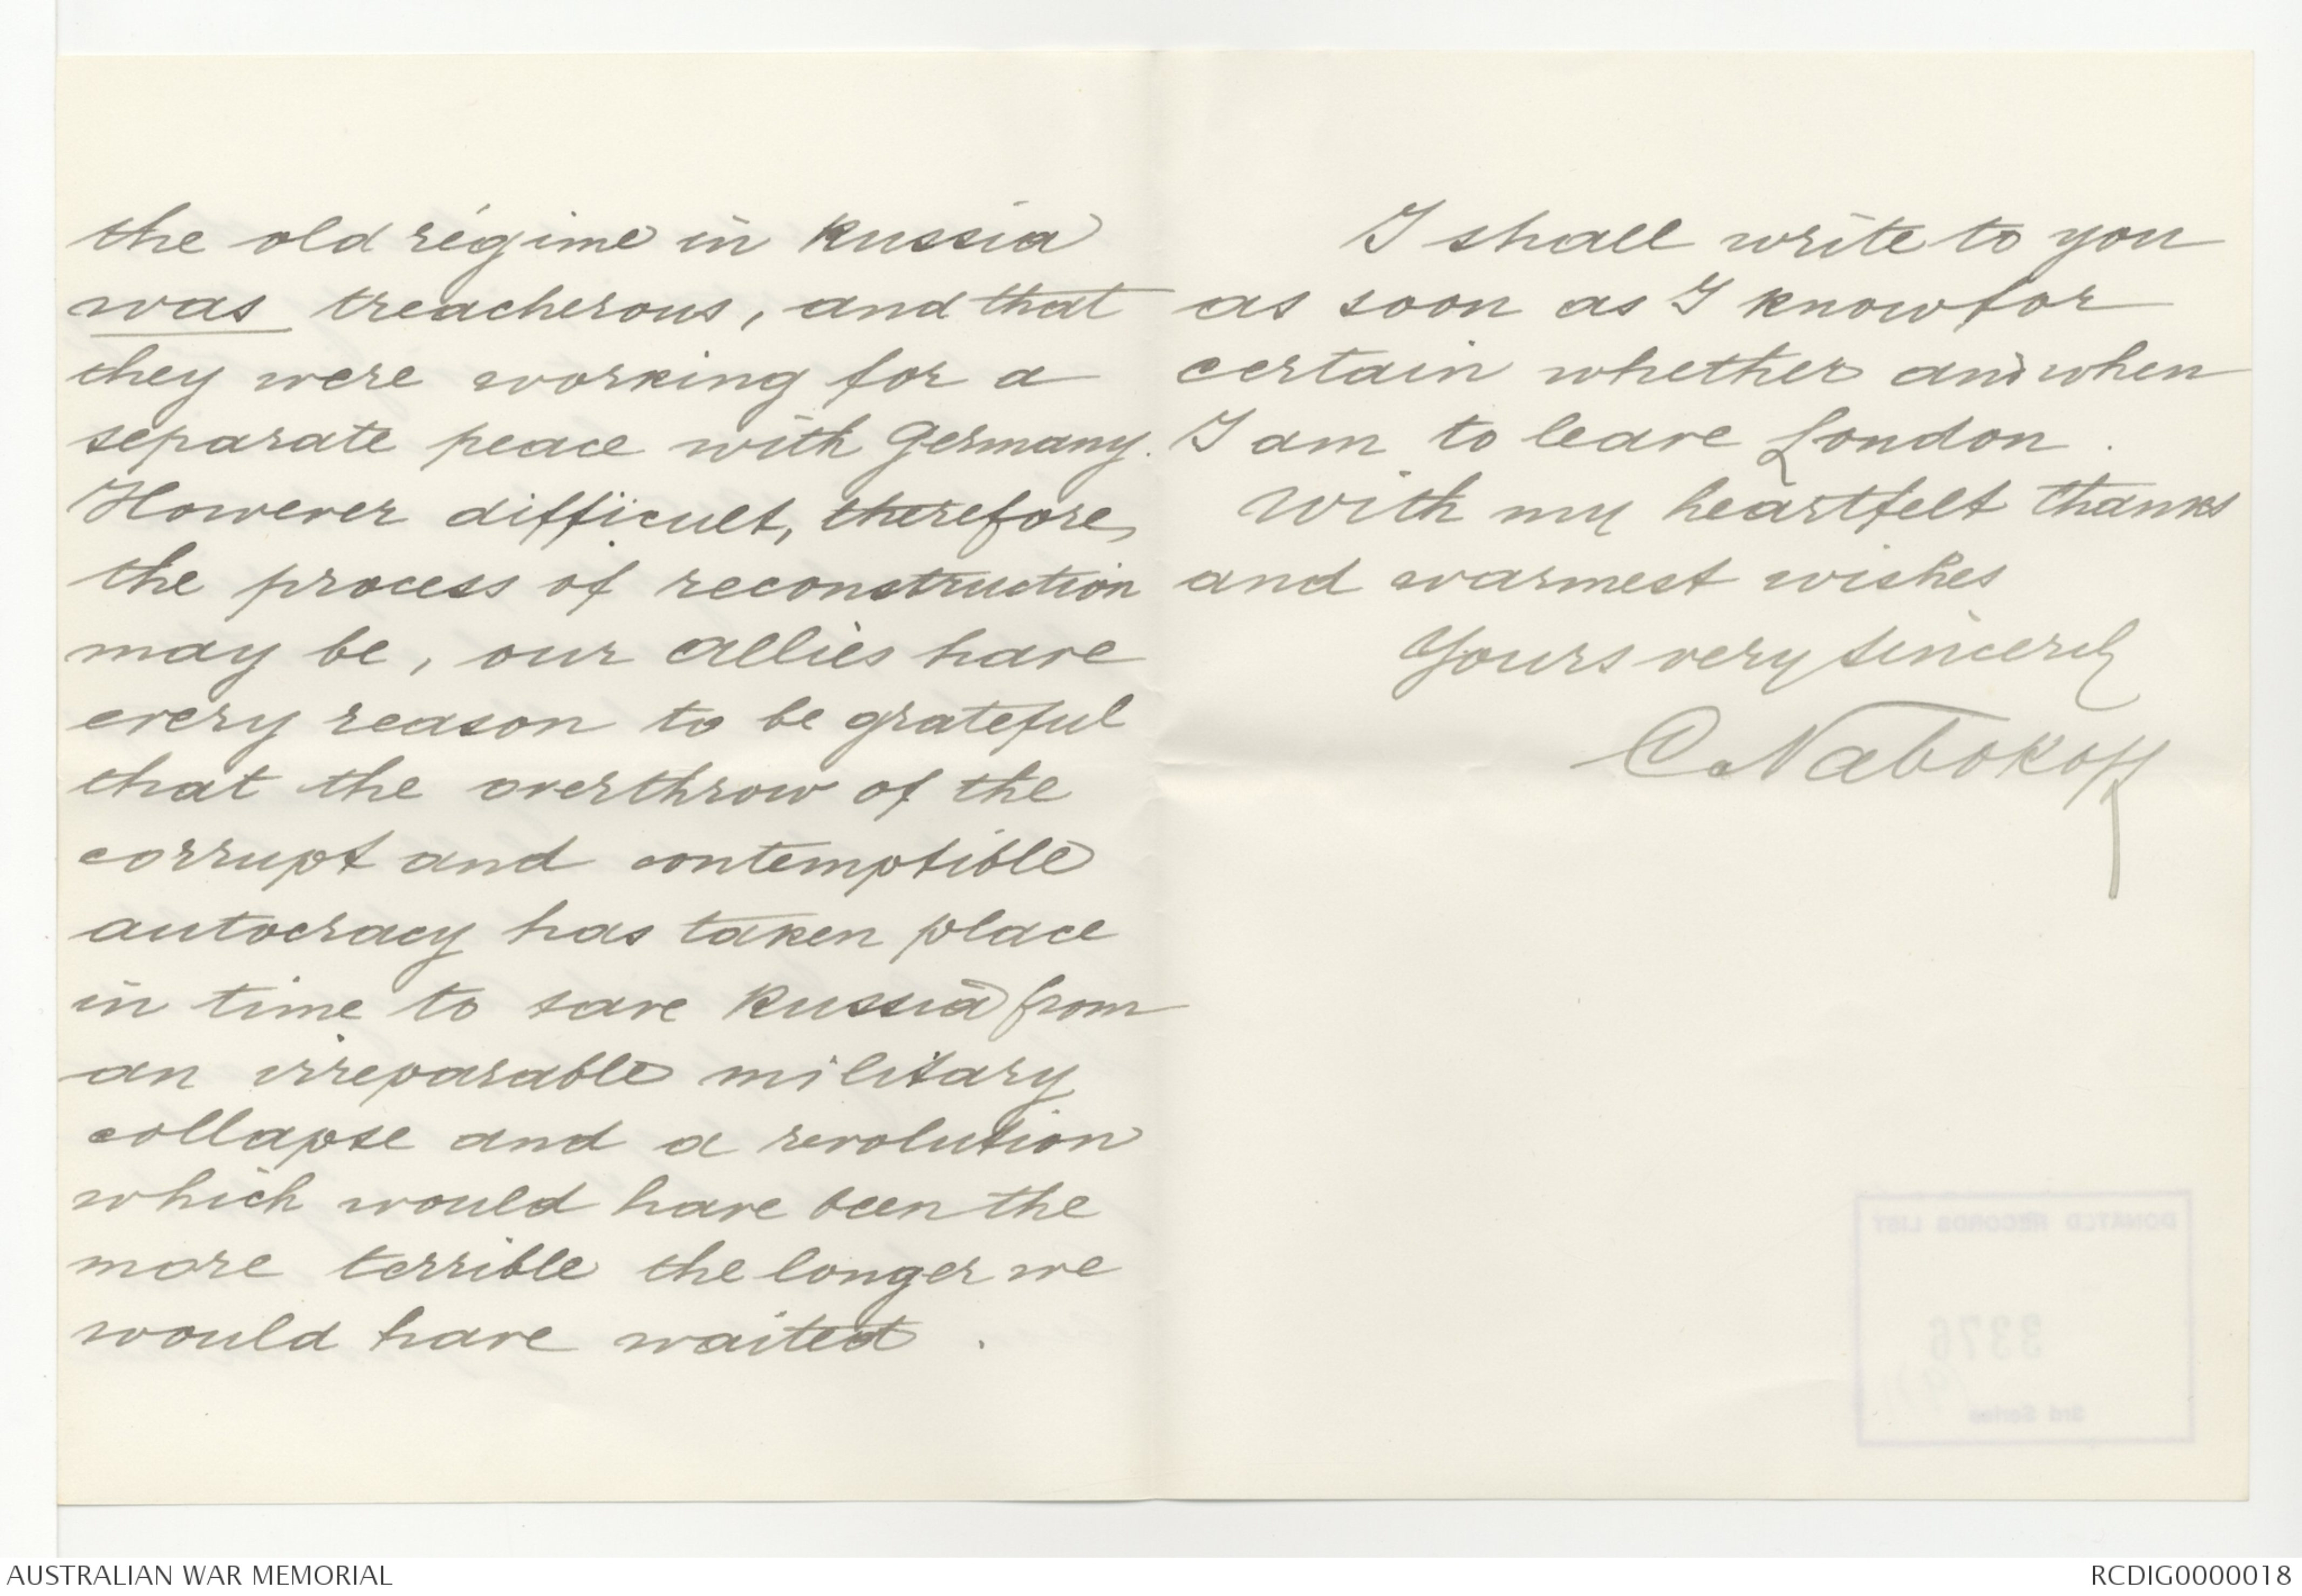 the old régime in Russia
was treacherous, and that
they were working for a
separate peace with Germany.
However difficult, therefore,
the process of reconstruction
may be, our allies have
every reason to be grateful
that the overthrow of the
corrupt and contemptible
autocracy has taken place
in time to save Russia from
an irreparable military
collapse and a revolution
which would have been the
more terrible the longer we
would have waited.
I shall write to you
as soon as I know for
certain whether and when
I am to leave London.
With my heartfelt thanks
and warmest wishes
Yours very sincerely
C. Nabokoff
DONATED RECORDS LIST
3376
3rd Series
AUSTRALIAN WAR MEMORIAL
RCDIG0000018